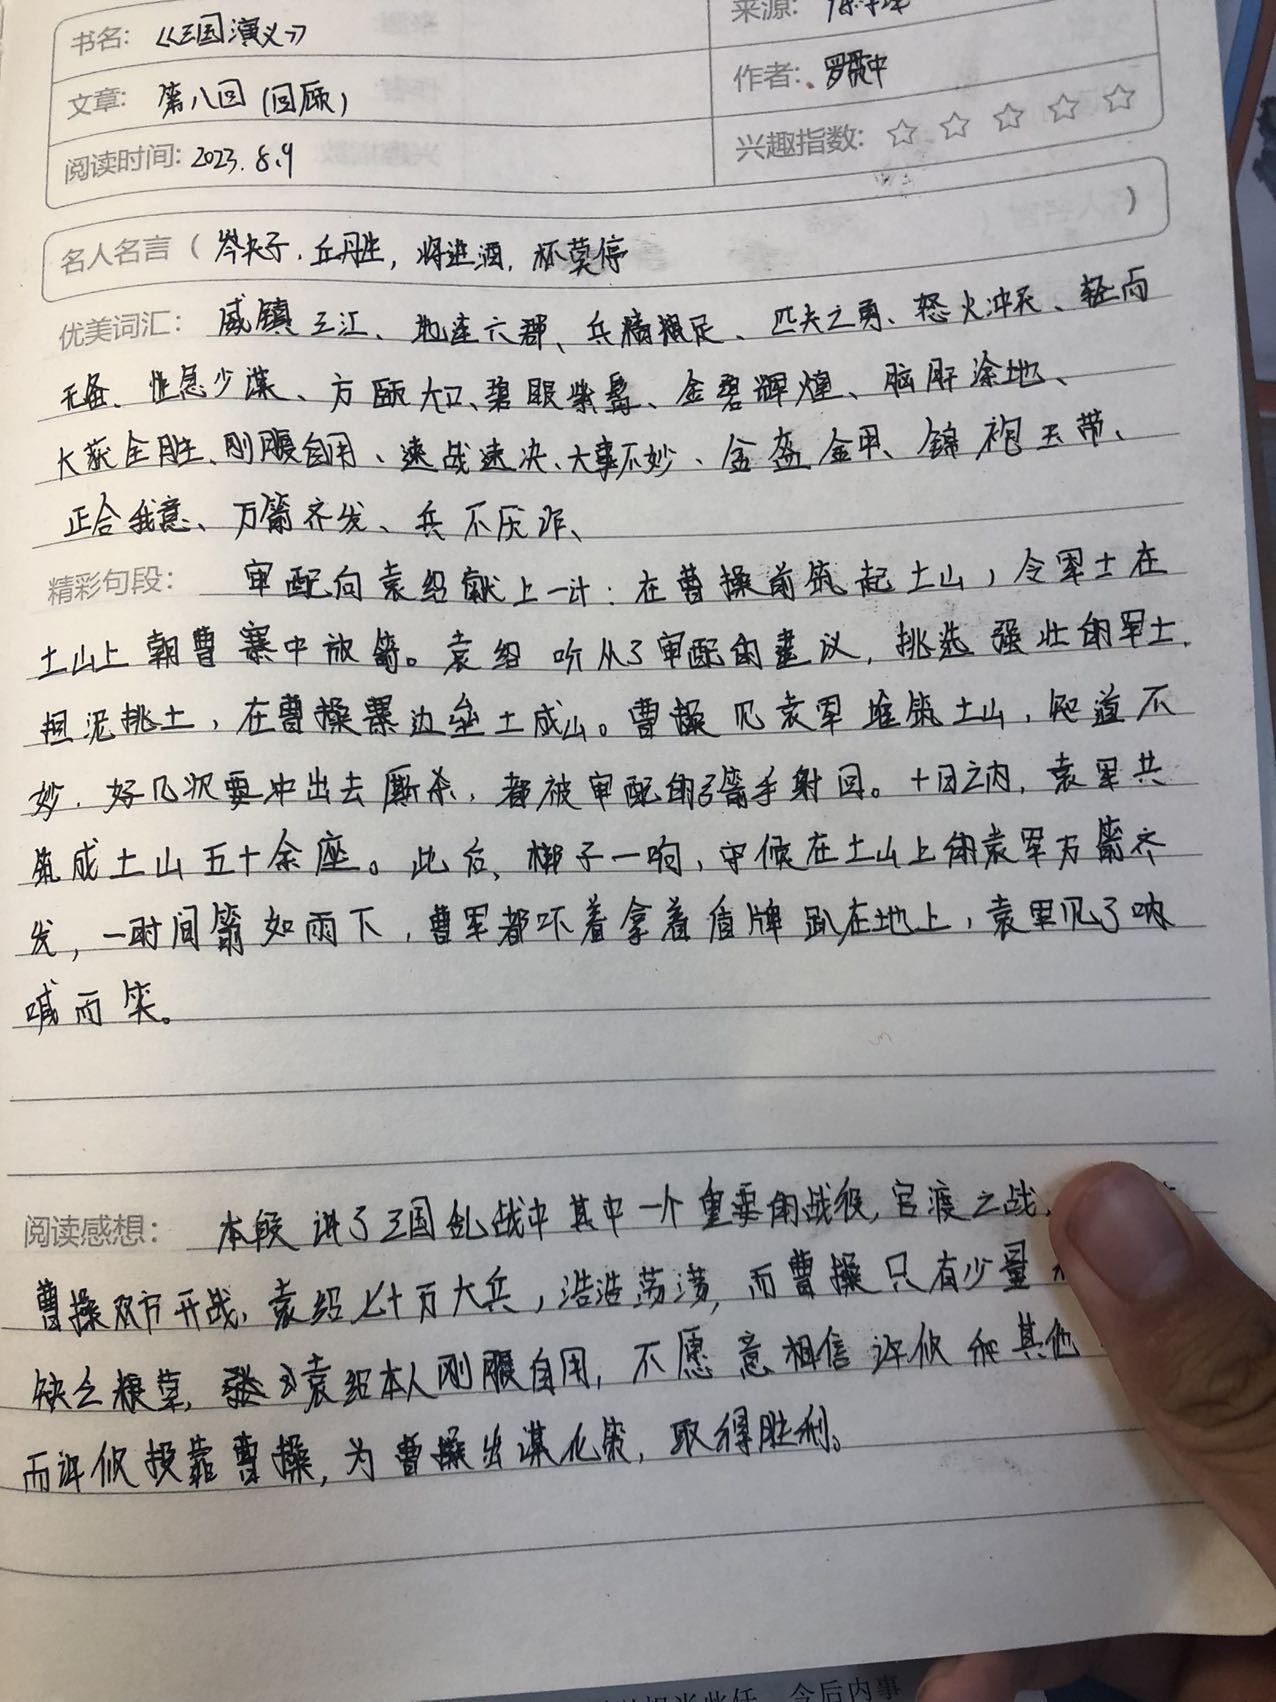 书名: 《三国演义》 来源:
文章: 第八回 (回顾) 作者: 罗贯中
阅读时间: 2023.8.9 兴趣指数: ☆ ☆ ☆ ☆ ☆
名人名言 ( 岑夫子，丘丹生，将进酒，杯莫停 )
优美词汇: 威镇三江、地连六郡、兵精粮足、匹夫之勇、怒火冲天、轻而
无备、性急少谋、方颐大口、碧眼紫髯、金碧辉煌、脑肝涂地、
大获全胜、刚腹自用、速战速决、大事不妙、金盔金甲、锦袍玉带、
正合我意、万箭齐发、兵不厌诈、
精彩句段: 审配向袁绍献上一计：在曹操前筑起土山，令军士在
土山上朝曹寨中放箭。袁绍听从了审配的建议，挑选强壮的军士，
担泥挑土，在曹操寨边垒土成山。曹操见袁军堆筑土山，知道不
妙，好几次要冲出去厮杀，都被审配的弓箭手射回。十日之内，袁军共
筑成土山五十余座。此后，梆子一响，守候在土山上的袁军万箭齐
发，一时间箭如雨下，曹军都吓着拿着盾牌趴在地上，袁军见了呐
喊而笑。
阅读感想: 本段讲了三国乱战中其中一个重要的战役，官渡之战，
曹操双方开战，袁绍七十万大兵，浩浩荡荡，而曹操只有少量
缺乏粮草，袁绍本人刚腹自用，不愿意相信许攸和其他
而许攸投靠曹操，为曹操出谋化策，取得胜利。
今后内事